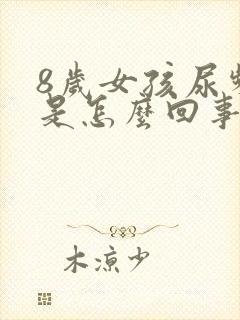 8歲女孩尿
是怎麼回事
木涼少